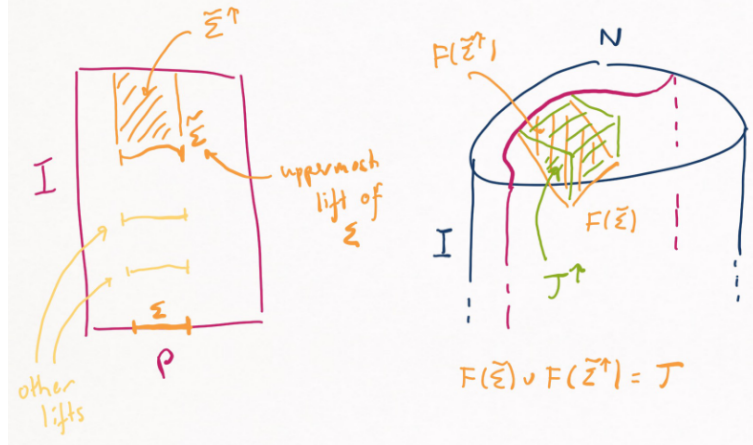 Σ̃↑
Σ̃
I
uppermost
lift of
Σ
Σ
P
other
lifts
N
F(Σ̃↑)
F(Σ̃)
I
J↑
F(Σ̃) ∪ F(Σ̃↑) = J